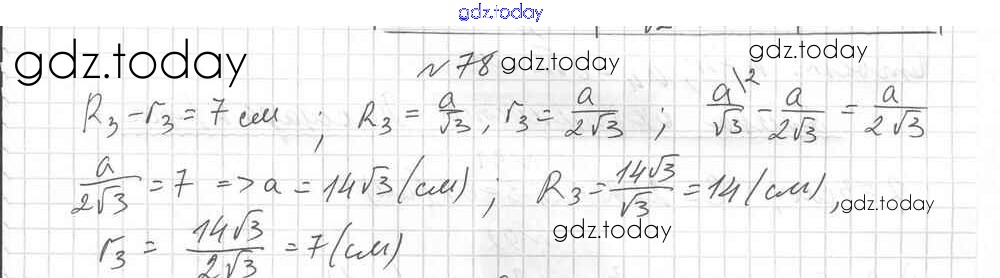 gdz.today
gdz.today № 78 gdz.today gdz.today
R₃ - r₃ = 7 см ; R₃ = a/√3 , r₃ = a/2√3 ; a/√3 \² - a/2√3 = a/2√3
a/2√3 = 7 => a = 14√3 (см) ; R₃ = 14√3/√3 = 14 (см) , gdz.today
r₃ = 14√3/2√3 = 7 (см) gdz.today